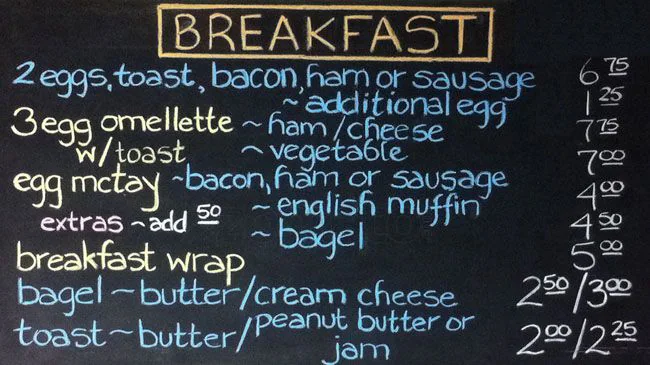 BREAKFAST
2 eggs, toast, bacon, ham or sausage 6 75
~ additional egg 1 25
3 egg omellette ~ ham/cheese 7 75
w/toast ~ vegetable 7 00
egg mctay ~ bacon, ham or sausage
~ english muffin 4 00
extras ~ add 50 ~ bagel 4 50
breakfast wrap 5 00
bagel ~ butter/cream cheese 2 50/3 00
toast ~ butter/peanut butter or 2 00/2 25
jam